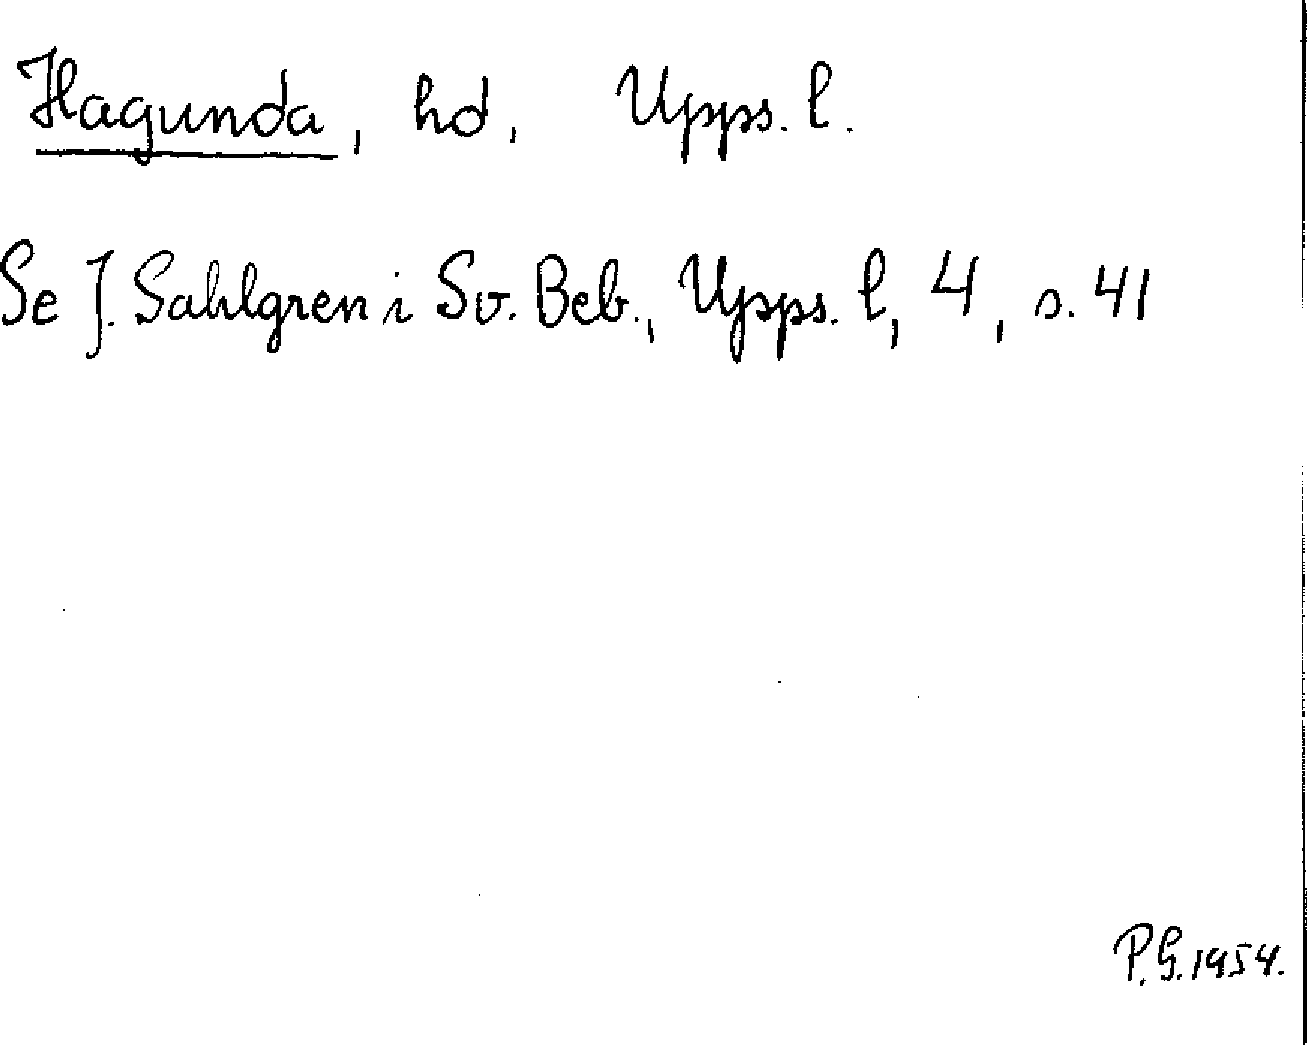 Hagunda, hd, Upps. l.
Se J. Sahlgren i Sv. Beb., Upps. l, 4, s. 41
P.G. 1954.